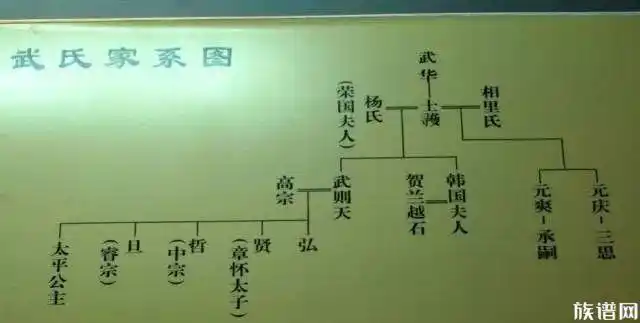 武氏家系图
武华
士彟
杨氏
(荣国夫人)
相里氏
高宗
武则天
贺兰越石
韩国夫人
元爽-承嗣
元庆-三思
太平公主
旦
(睿宗)
哲
(中宗)
贤
(章怀太子)
弘
族谱网